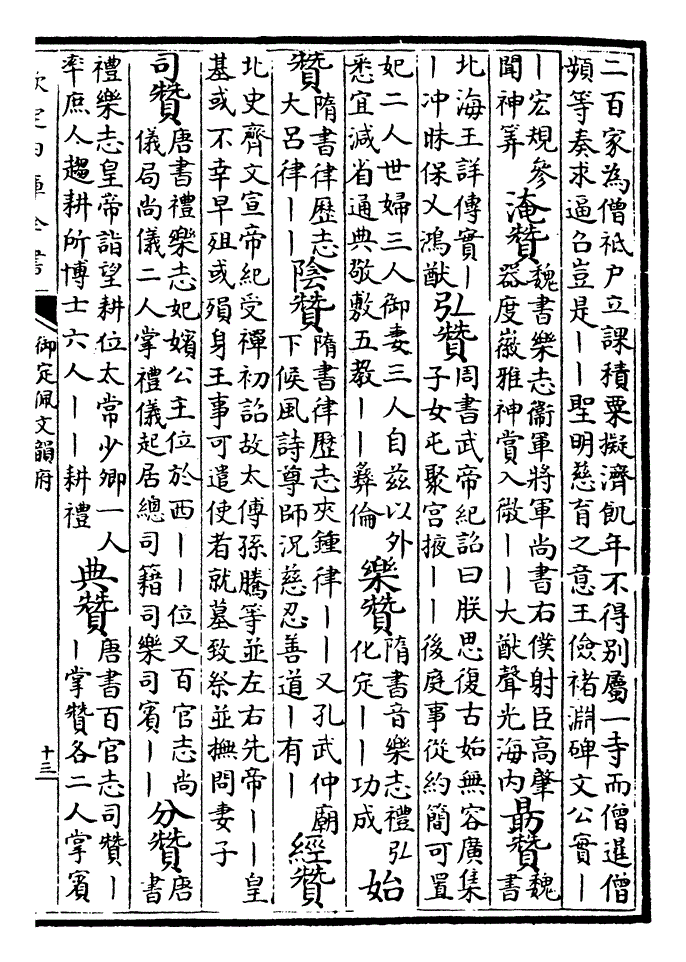 二百家為僧祇户立課積粟擬濟飢年不得别屬一寺而僧暹僧
頻等奏求逼召豈是丨丨聖明慈育之意王儉褚淵碑文公實丨
丨宏規參
聞神筭
淹贊
魏書樂志衞軍將軍尚書右僕射臣高肇
器度徽雅神賞入微丨丨大猷聲光海内
最贊
魏
書
北海王詳傳實丨
丨冲昧保乂鴻猷
弘贊
周書武帝紀詔曰朕思復古始無容廣集
子女屯聚宫掖丨丨後庭事從約簡可置
妃二人世婦三人御妻三人自兹以外
悉宜減省通典敬敷五教丨丨彝倫
樂贊
隋書音樂志禮弘
化定丨丨功成
始
贊
隋書律歷志
大吕律丨丨
陰贊
隋書律歷志夾鍾律丨丨又孔武仲廟
下候風詩尊師況慈忍善道丨有丨
經贊
北史齊文宣帝紀受禪初詔故太傅孫騰等並左右先帝丨丨皇
基或不幸早殂或殞身王事可遣使者就墓致祭並撫問妻子
司贊
唐書禮樂志妃嬪公主位於西丨丨位又百官志尚
儀局尚儀二人掌禮儀起居總司籍司樂司賓丨丨
分贊
唐
書
禮樂志皇帝詣望耕位太常少卿一人
率庶人趨耕所博士六人丨丨耕禮
典贊
唐書百官志司贊丨
丨掌贊各二人掌賓
欽定四庫全書
御定佩文韻府
十三